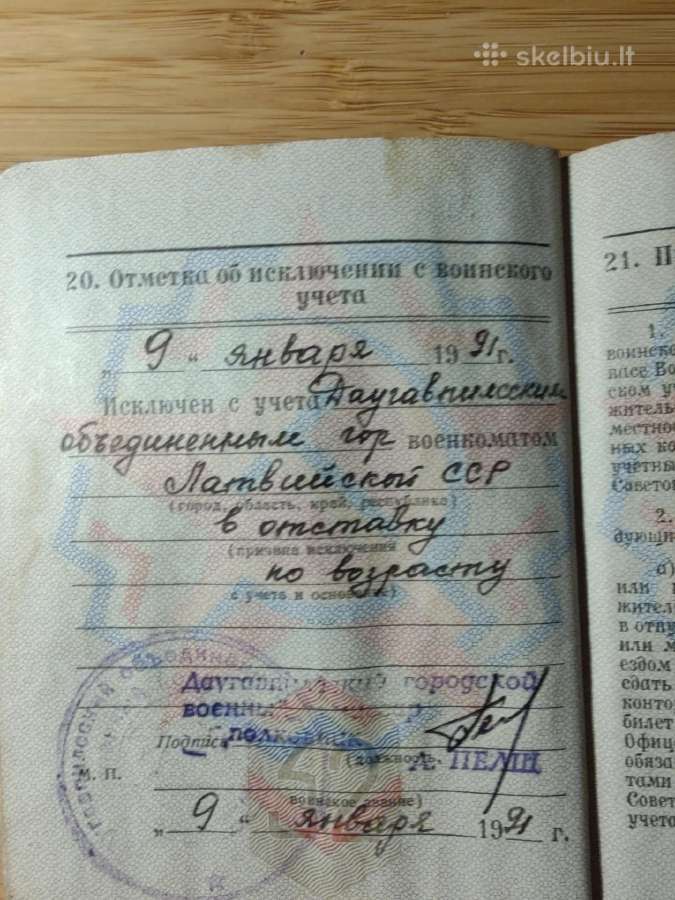 skelbiu.lt
20. Отметка об исключении с воинского
учета
„ 9 “ января 1991 г.
Исключен с учета Даугавпилсским
объединенным гор военкоматом
Латвийской ССР
(город, область, край, республика)
в отставку
(причина исключения
по возрасту
с учета и основание)
Даугавпилсский городской
военный
полковник
Подпись
(должность,
А. ПЕЛИЦ
М. П.
воинское звание)
„ 9 “ января 1991 г.
21. П
1.
воинско
васе Во
ском уч
житель
местнос
ных ко
учетны
Советог
2.
дующи
а)
или
жител
в отпу
или м
ездом
едать
контор
билет
Офице
обяза
тами
Совет
учета